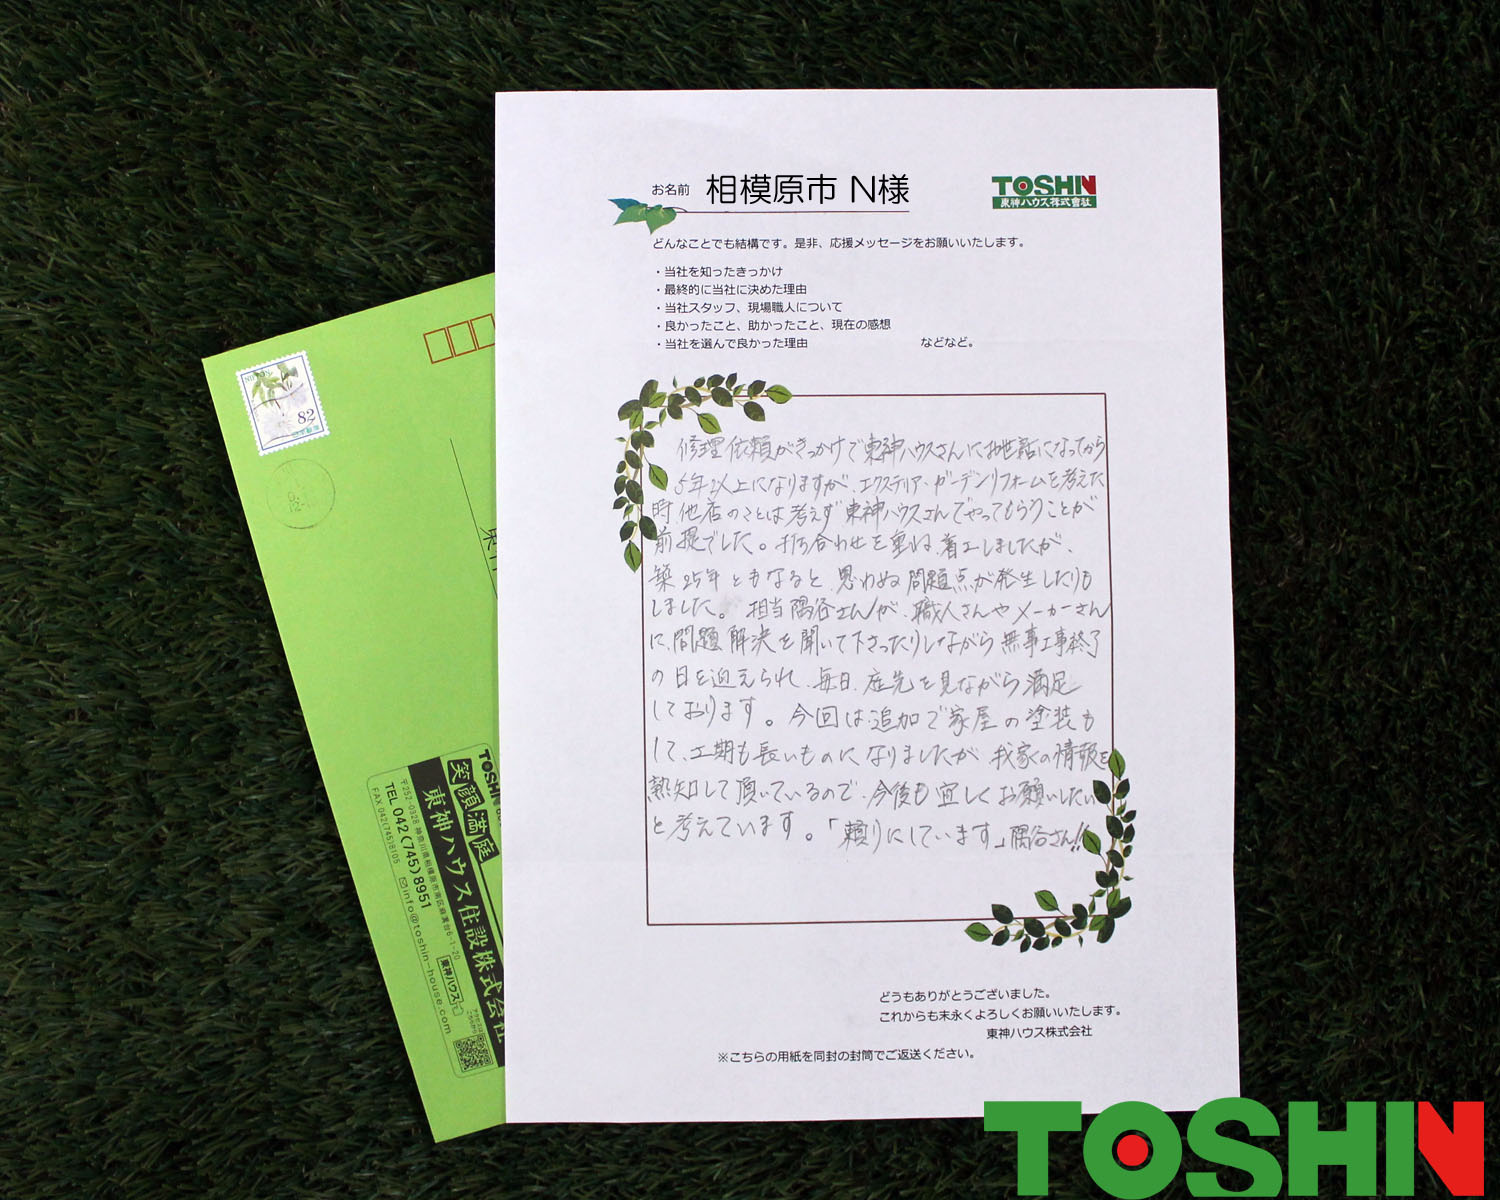 お名前 相模原市 N様
TOSHIN
東神ハウス株式會社
どんなことでも結構です。是非、応援メッセージをお願いいたします。
・当社を知ったきっかけ
・最終的に当社に決めた理由
・当社スタッフ、現場職人について
・良かったこと、助かったこと、現在の感想
・当社を選んで良かった理由 などなど。
修理依頼がきっかけで東神ハウスさんにお世話になってから
5年以上になりますが、エクステリア・ガーデンリフォームを考えた
時、他店のことは考えず東神ハウスさんでやってもらうことが
前提でした。打ち合わせを重ね、着工しましたが、
築25年ともなると、思わぬ問題点が発生したりも
しました。担当隅谷さんが、職人さんやメーカーさん
に、問題解決を聞いて下さったりしながら無事工事終了
の日を迎えられ、毎日、庭先を見ながら満足
しております。今回は追加で家屋の塗装も
して、工期も長いものになりましたが、我家の情報を
熟知して頂いているので、今後も宜しくお願いしたい
と考えています。「頼りにしています」隅谷さん!!
どうもありがとうございました。
これからも末永くよろしくお願いいたします。
東神ハウス株式会社
※こちらの用紙を同封の封筒でご返送ください。
NIPPON
82
TOSHIN
笑顔満庭
東神ハウス住設株式会社
〒252-0328 神奈川県相模原市南区麻溝台6-1-20
TEL 042(745)8951
FAX 042(745)8105
info@toshin-house.com
東神ハウス
アクセスは
こちらから
TOSHIN